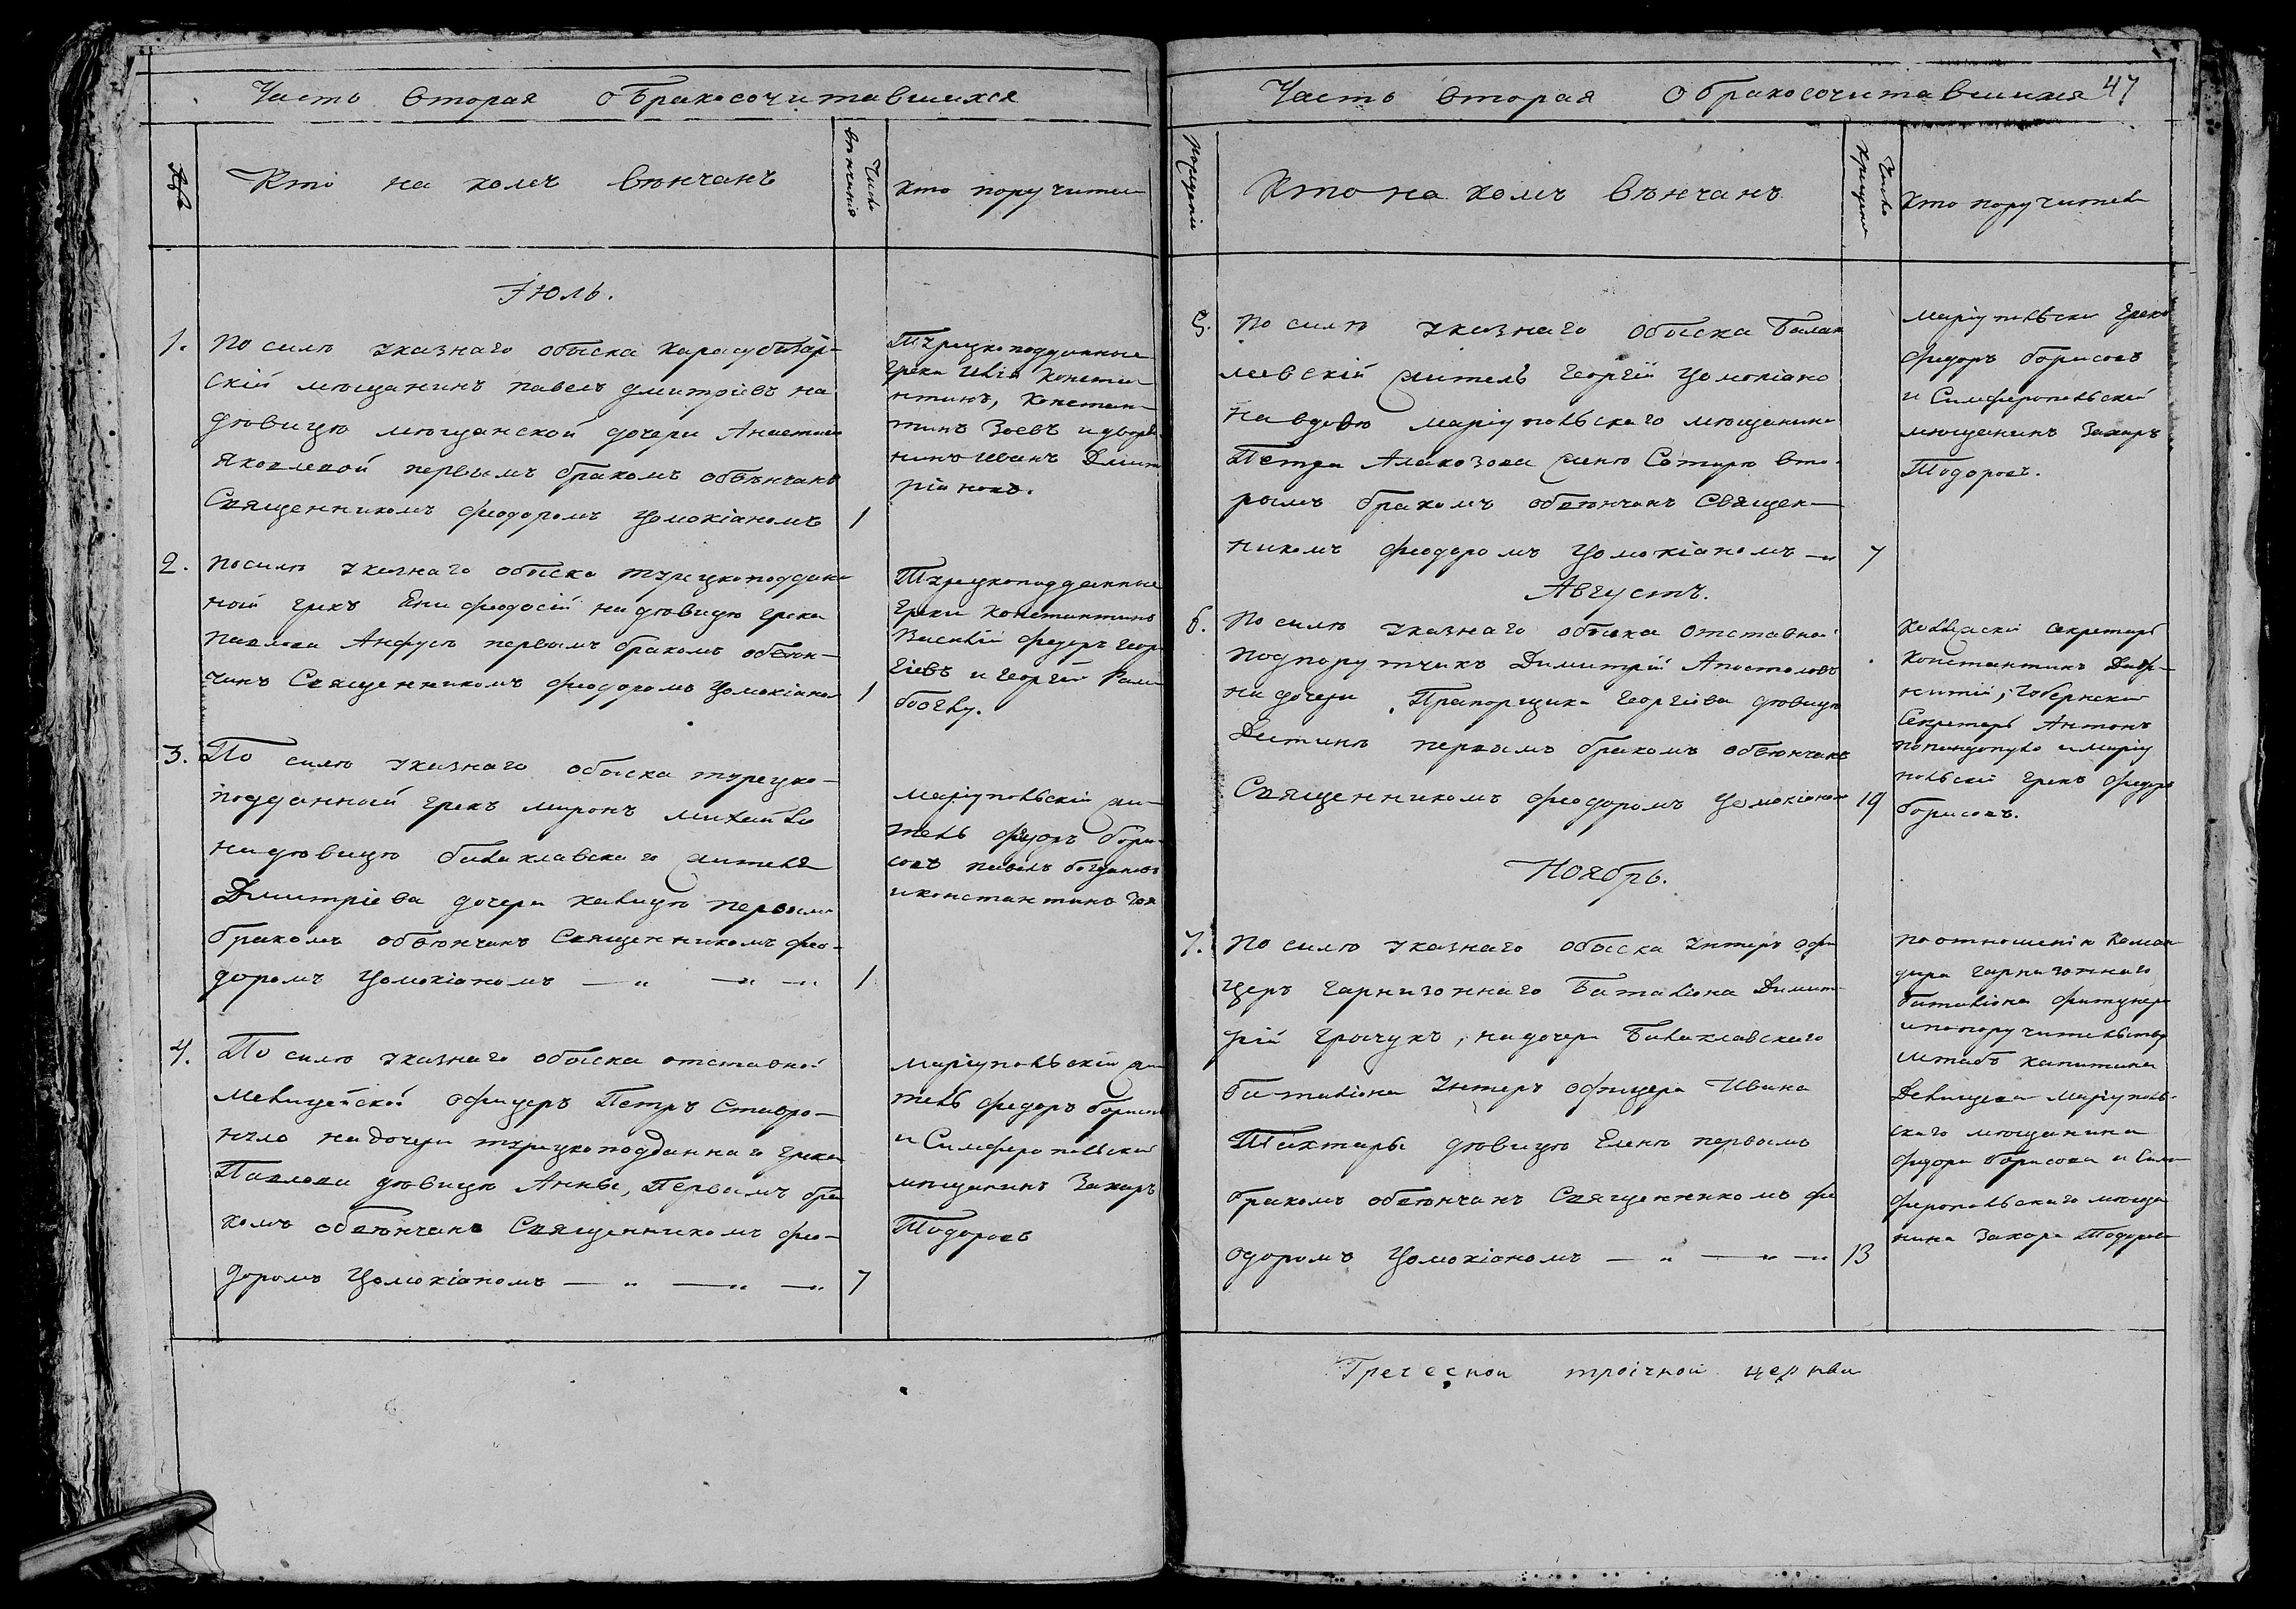 Часть вторая о бракосочитавшихся
Кто на комъ вѣнчанъ
Число вѣнчанія
Кто поручители
Іюль.
1. По силѣ указнаго обыска карасубазар-
скій мѣщанинъ павелъ дмитріевъ на
дѣвицѣ мѣщанской дочери Анастасіи
яковлевой первымъ бракомъ обвѣнчанъ
Священникомъ феодоромъ Цомокіаномъ 1
Турецкоподданные
греки Илія Констан-
нтинъ, Констан-
тинъ Зоевъ и дворя-
нинъ иванъ Дмит
ріновъ.
2. По силѣ указнаго обыска турецкоподдан
ной грекъ Яни феодосій на дѣвицѣ грека
павлова Анфусѣ первымъ бракомъ обвѣн-
чанъ Священникомъ феодоромъ Цомокіаном 1
Турецкоподданные
Греки Константинъ
Василій федоръ Геор
гіевъ и Георгій
3. По силѣ указнаго обыска турецко-
подданный грекъ миронъ михайло
на дѣвицѣ балаклавскаго жителя
Дмитріева дочери калицѣ первымъ
бракомъ обвѣнчанъ Священникомъ фео-
доромъ Цомокіаномъ — „ — „ — „ 1
маріупольскій жи-
тель федоръ бори-
совъ павелъ богдановъ
и константинъ
4. По силѣ указнаго обыска отставной
мелицейской офицеръ Петръ Ставро-
нъло на дочери турецкоподданнаго грека
Павлова дѣвицѣ Анны, Первымъ бра
комъ обвѣнчанъ Священникомъ фео-
доромъ Цомокіаномъ — „ — „ — „ 7
маріупольскій жи
тель федоръ борисовъ
и Симферопольскій
мѣщанинъ Захаръ
Тодоровъ
Часть вторая о бракосочитавшихся 47
рожденія
Кто на комъ вѣнчанъ
Число крещенія
Кто поручители
5. По силѣ указнаго обыска Балак
лавскій житель Георгій Цомокіано
на вдовѣ маріупольскаго мѣщанина
Петра Алакозова женѣ Сотирѣ вто-
рымъ бракомъ обвѣнчанъ Священ-
никомъ феодоромъ Цомокіаномъ — „ 7
маріупольски грекъ
федоръ борисовъ
и Симферопольской
мѣщанинъ Захаръ
Тодоровъ.
Августъ.
6. По силѣ указнаго обыска отставной
подпорутчикъ Димитрій Апостоловъ
на дочери Прапорщика Георгіева дѣвицѣ
Деспинѣ первымъ бракомъ обвѣнчанъ
Священникомъ феодоромъ Цомокіаном 19
Колежскій секретарь
Константинъ
Губернскій
Секретарь Антонъ
попандопуло и маріу
польскій грекъ федоръ
борисовъ.
Ноябрь.
7. По силѣ указнаго обыска Унтеръ офи
церъ гарнизоннаго Баталіона Димит
рій Грычукъ, на дочери Балаклавскаго
баталіона Унтеръ офицера Ивана
Тахтары дѣвицѣ Еленѣ первымъ
бракомъ обвѣнчанъ Священникомъ фе
одоромъ Цомокіаномъ — „ — „ — „ 13
по отношенію Коман
дира гарнизоннаго
баталіона
и по поручительству
штабъ капитана
маріуполь-
скаго мѣщанина
федора борисова и Сим
феропольскаго мѣща
нина Захара Тодорова
Греческой троічной церкви